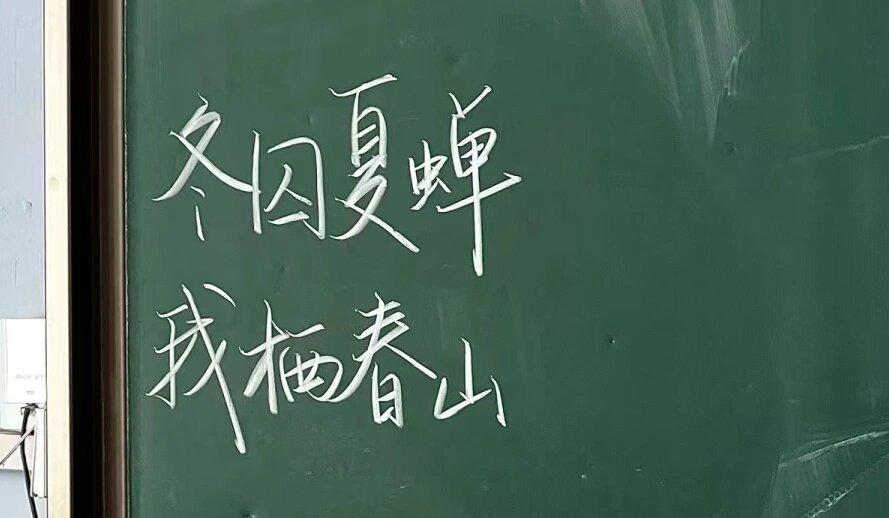 冬囚夏蝉
我栖春山